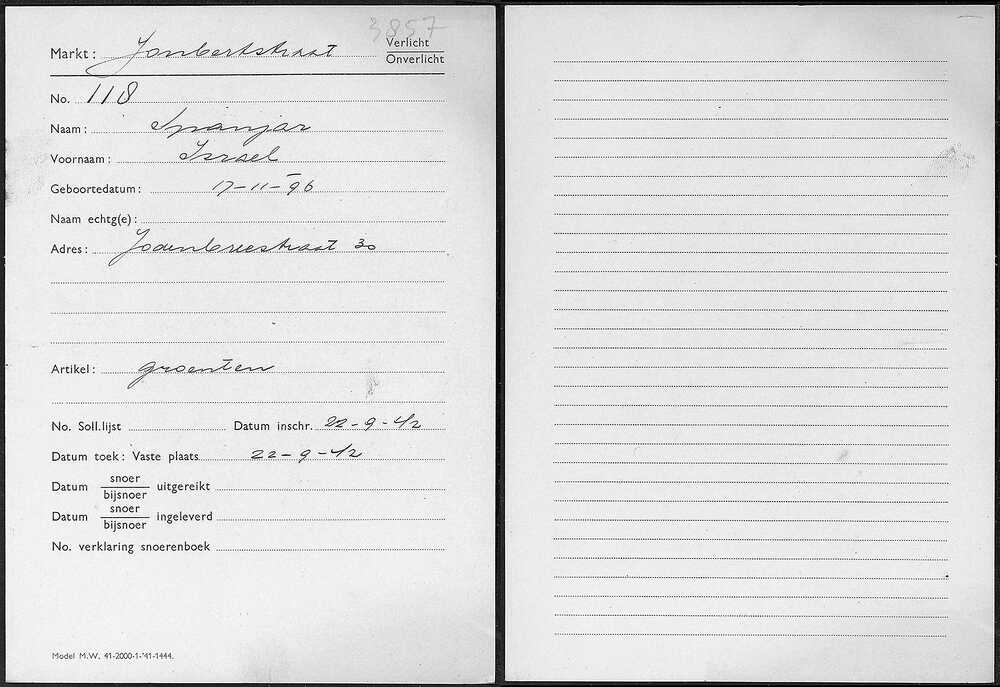 3857
Markt: Joubertstraat Verlicht
Onverlicht
No. 118
Naam: Spanjar
Voornaam: Israel
Geboortedatum: 17-11-96
Naam echtg(e):
Adres: Jodenbreestraat 30
Artikel: groenten
No. Soll.lijst Datum inschr. 22-9-42
Datum toek: Vaste plaats 22-9-42
Datum snoer uitgereikt
bijsnoer
Datum snoer ingeleverd
bijsnoer
No. verklaring snoerenboek
Model M.W. 41-2000-1-'41-1444.